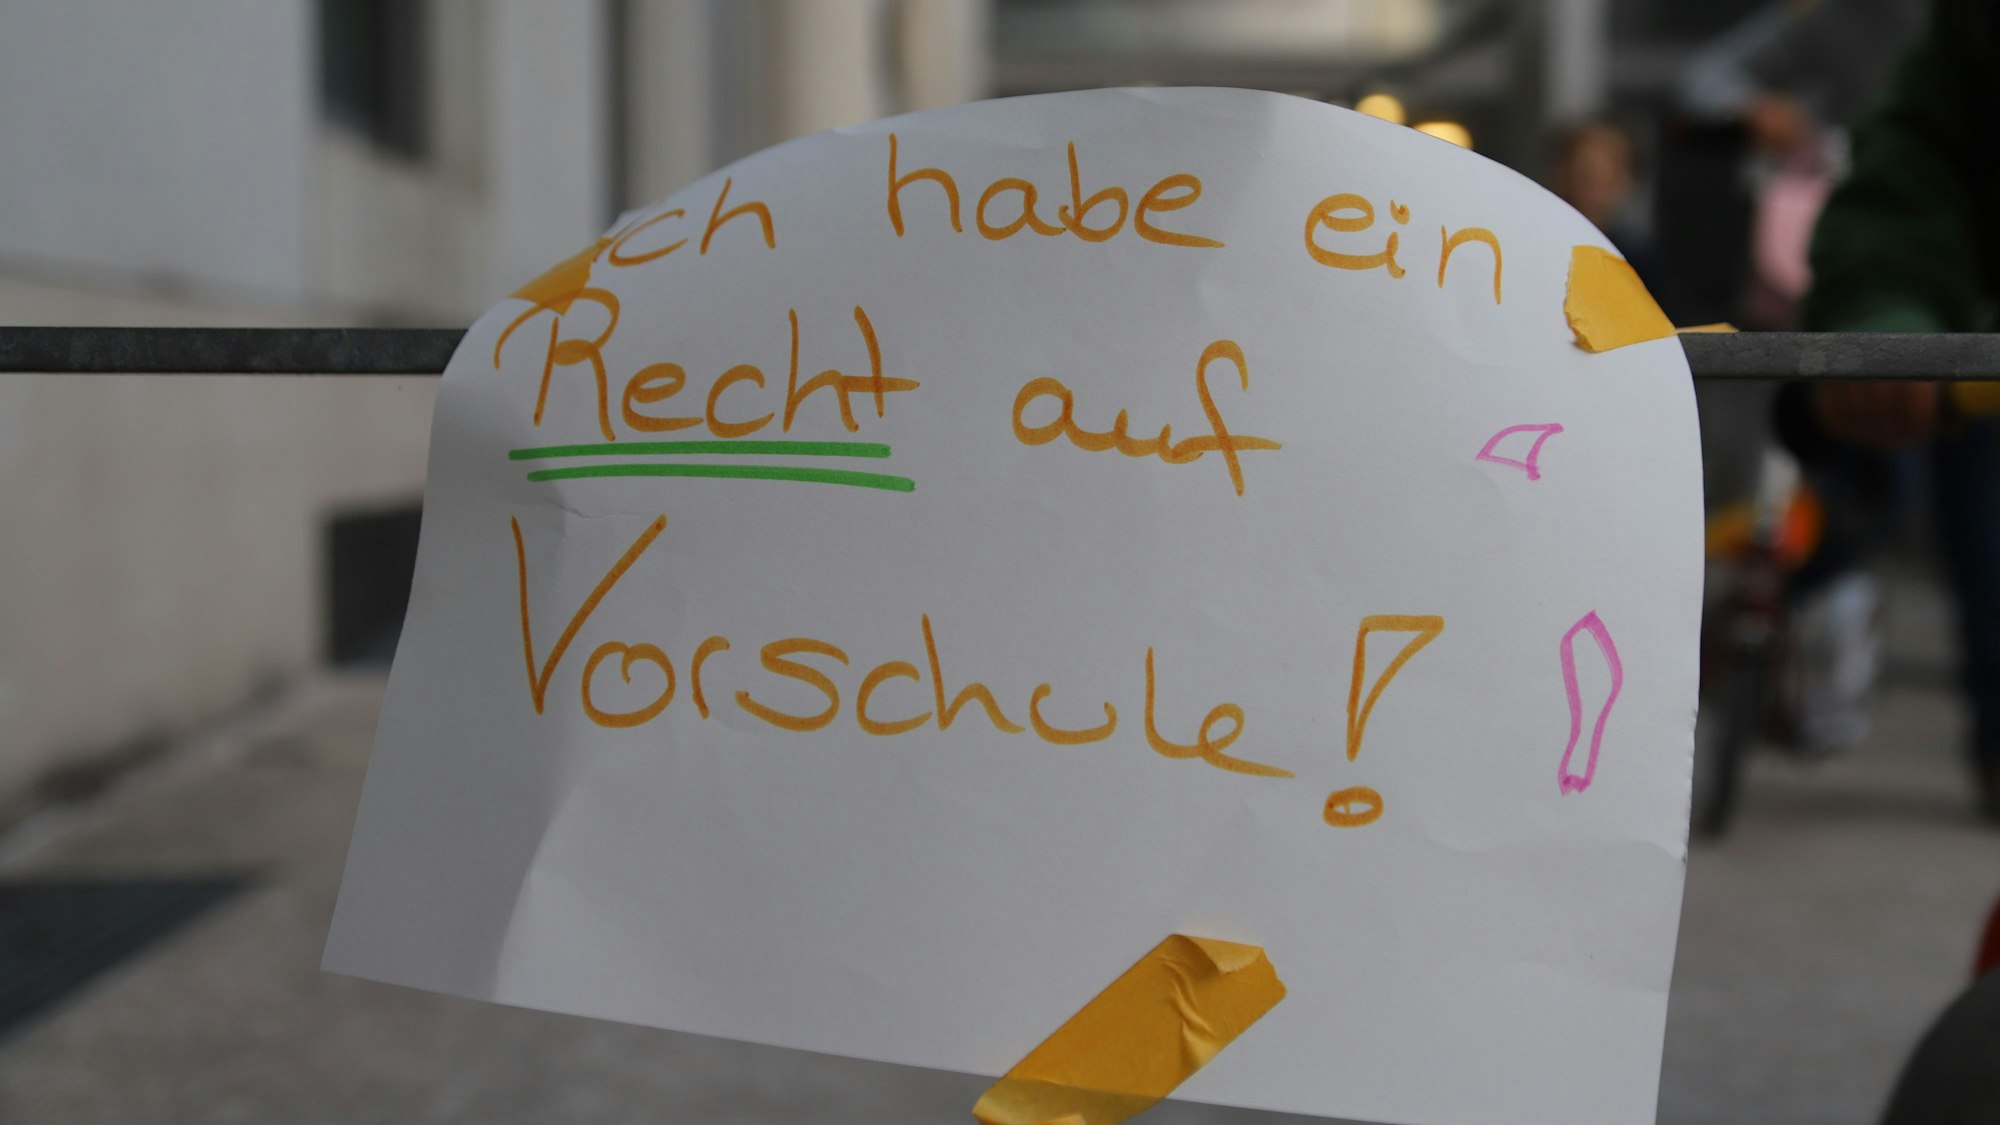 Ich habe ein
Recht auf
Vorschule!